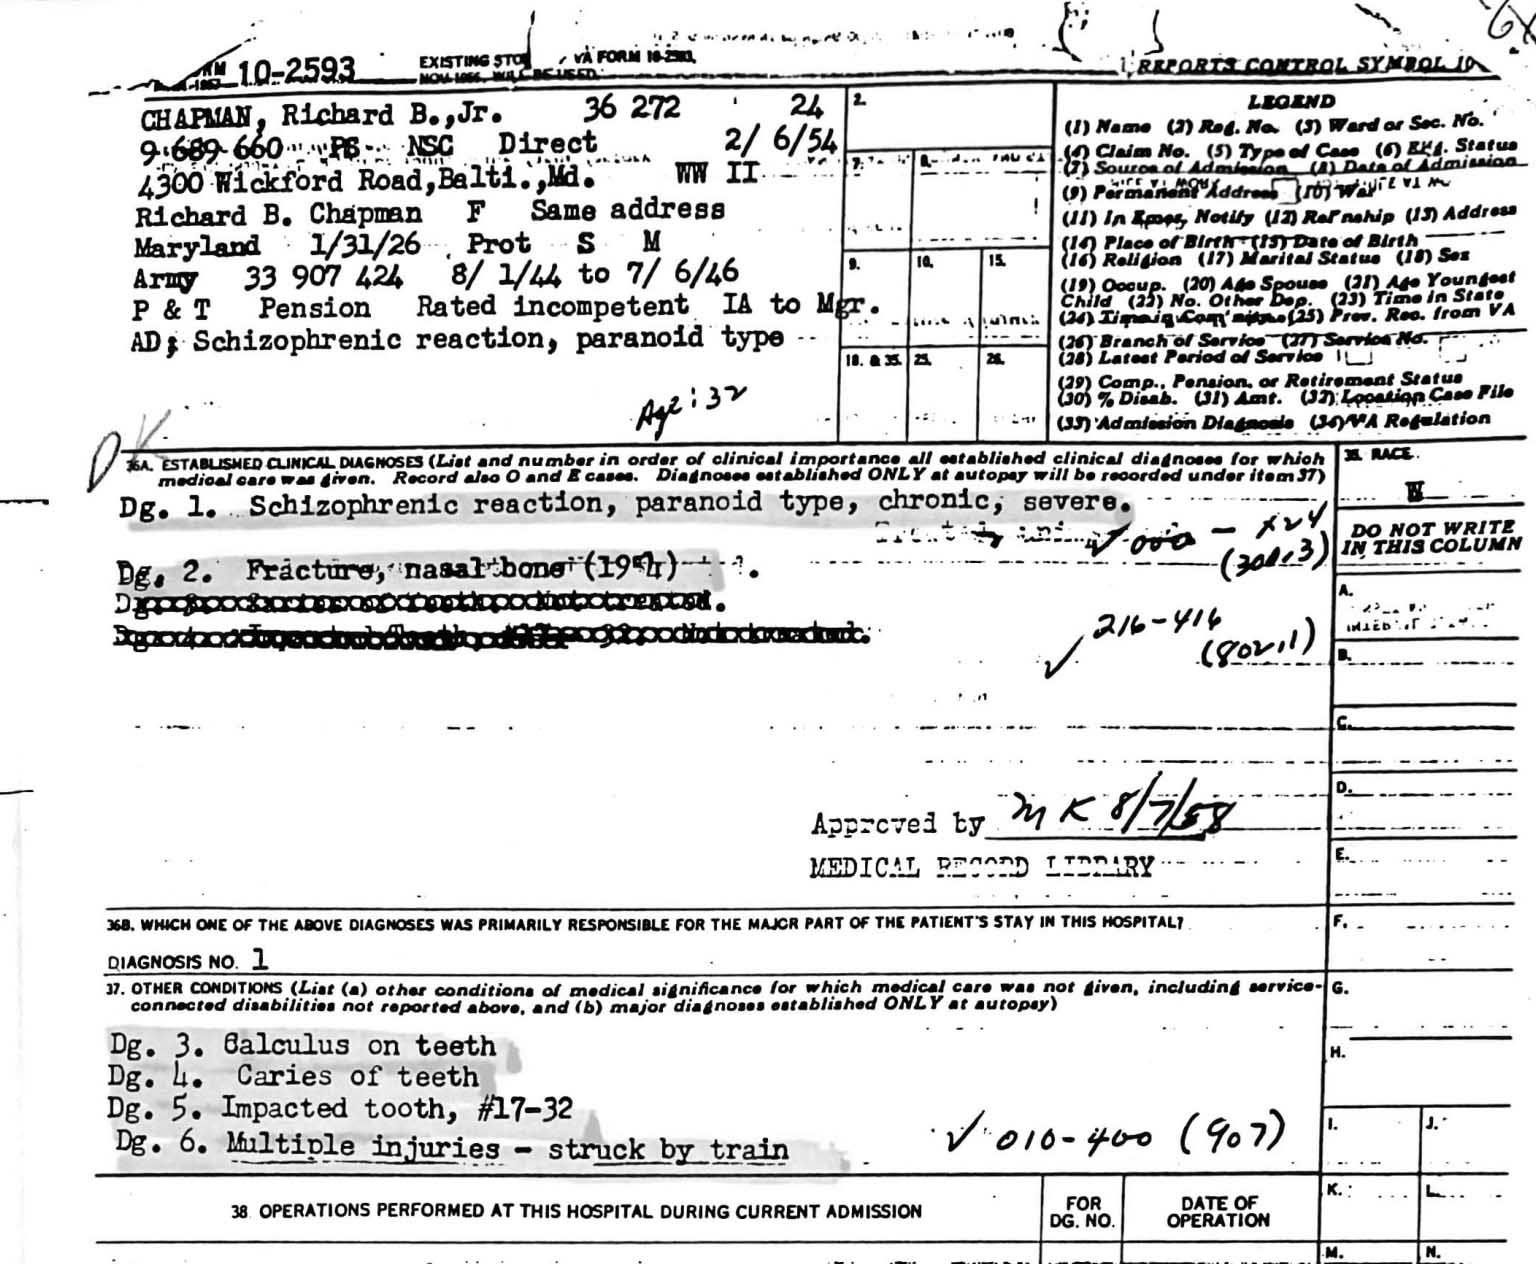 10-2593
EXISTING VA FORM 10-2593,
REPORTS CONTROL SYMBOL 10
CHAPMAN, Richard B.,Jr. 36 272 24
9 689 660 PS NSC Direct 2/ 6/54
4300 Wickford Road,Balti.,Md. WW II
Richard B. Chapman F Same address
Maryland 1/31/26 Prot S M
Army 33 907 424 8/ 1/44 to 7/ 6/46
P & T Pension Rated incompetent IA to Mgr.
AD; Schizophrenic reaction, paranoid type
Age: 32
2.
7.
8.
9. 10. 15.
18. & 35. 25. 26.
LEGEND
(1) Name (2) Reg. No. (3) Ward or Sec. No.
(4) Claim No. (5) Type of Case (6) Elig. Status
(7) Source of Admission (8) Date of Admission
(9) Permanent Address (10) War
(11) In Emer, Notify (12) Rel'nship (13) Address
(14) Place of Birth (15) Date of Birth
(16) Religion (17) Marital Status (18) Sex
(19) Occup. (20) Age Spouse (21) Age Youngest
Child (22) No. Other Dep. (23) Time in State
(24) (25) Prev. Rec. from VA
(26) Branch of Service (27) Service No.
(28) Latest Period of Service
(29) Comp., Pension, or Retirement Status
(30) % Disab. (31) Amt. (32) Location Case File
(33) Admission Diagnosis (34) VA Regulation
OK
36A. ESTABLISHED CLINICAL DIAGNOSES (List and number in order of clinical importance all established clinical diagnoses for which
medical care was given. Record also O and E cases. Diagnoses established ONLY at autopsy will be recorded under item 37)
35. RACE
W
DO NOT WRITE
IN THIS COLUMN
Dg. 1. Schizophrenic reaction, paranoid type, chronic, severe.
✓ 000 - x24
(300.3)
Dg. 2. Fracture, nasal bone (1954).
216-416
✓ (802.1)
Approved by MK 8/7/58
MEDICAL RECORD LIBRARY
36B. WHICH ONE OF THE ABOVE DIAGNOSES WAS PRIMARILY RESPONSIBLE FOR THE MAJOR PART OF THE PATIENT'S STAY IN THIS HOSPITAL?
DIAGNOSIS NO. 1
37. OTHER CONDITIONS (List (a) other conditions of medical significance for which medical care was not given, including service-
connected disabilities not reported above, and (b) major diagnoses established ONLY at autopsy)
Dg. 3. Calculus on teeth
Dg. 4. Caries of teeth
Dg. 5. Impacted tooth, #17-32
Dg. 6. Multiple injuries - struck by train ✓ 010-400 (907)
38. OPERATIONS PERFORMED AT THIS HOSPITAL DURING CURRENT ADMISSION
FOR
DG. NO.
DATE OF
OPERATION
A.
B.
C.
D.
E.
F.
G.
H.
I. J.
K. L.
M. N.